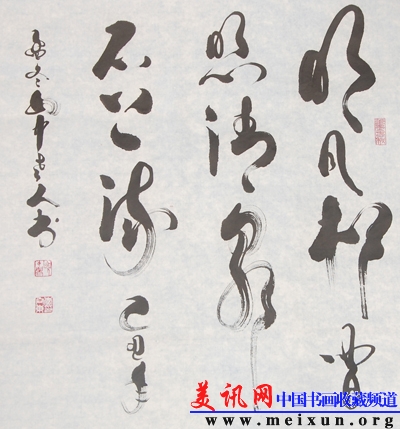 明月松间
照清泉
石上流 己丑年
冬 老人书
美讯网 中国书画收藏频道
www.meixun.org